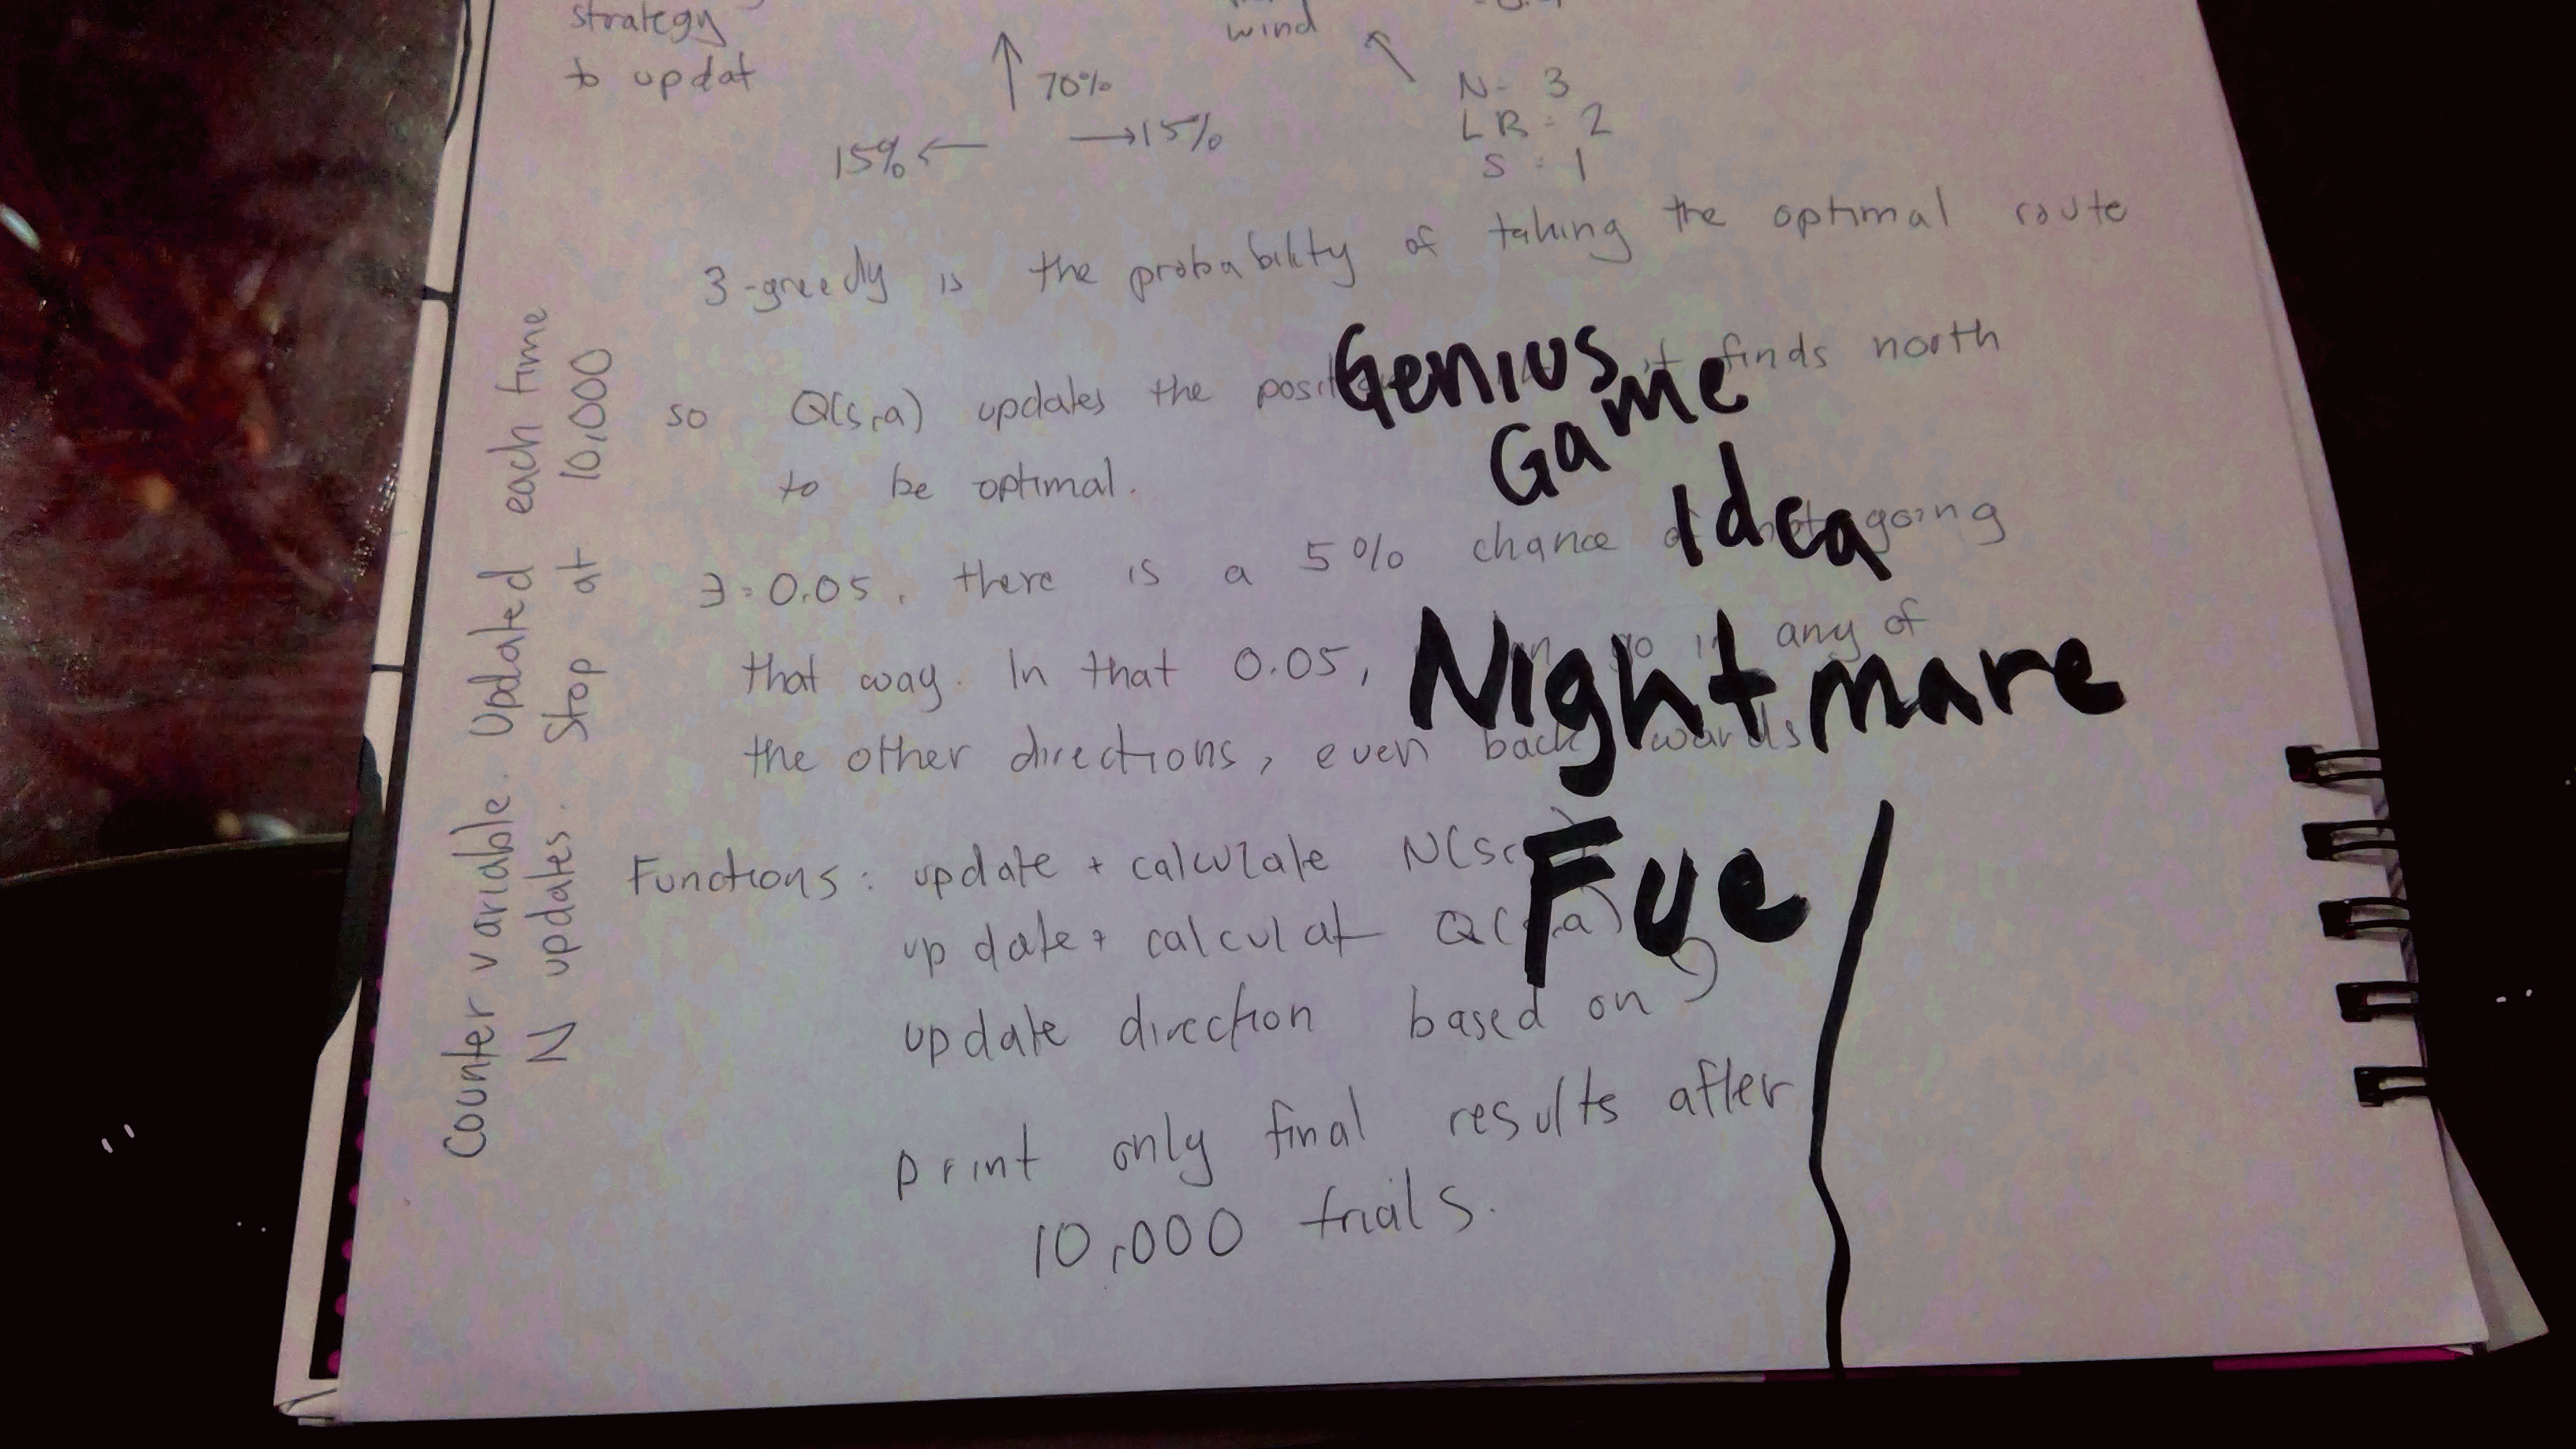 strategy
to updat
wind
70%
15% ← → 15%
N- 3
LR - 2
S : 1
3-greedy is the probability of taking the optimal route
so Q(s,a) updates the finds north
to be optimal.
∃ = 0.05, there is a 5% chance going
that way. In that 0.05, any of
the other directions, even back wards
Functions: update + calculate
up date + calculat
update direction based on
print only final results after
10,000 trials.
Counter variable. Updated each time
N updates. Stop at 10,000
Genius
Game
Idea
Nightmare
Fuel